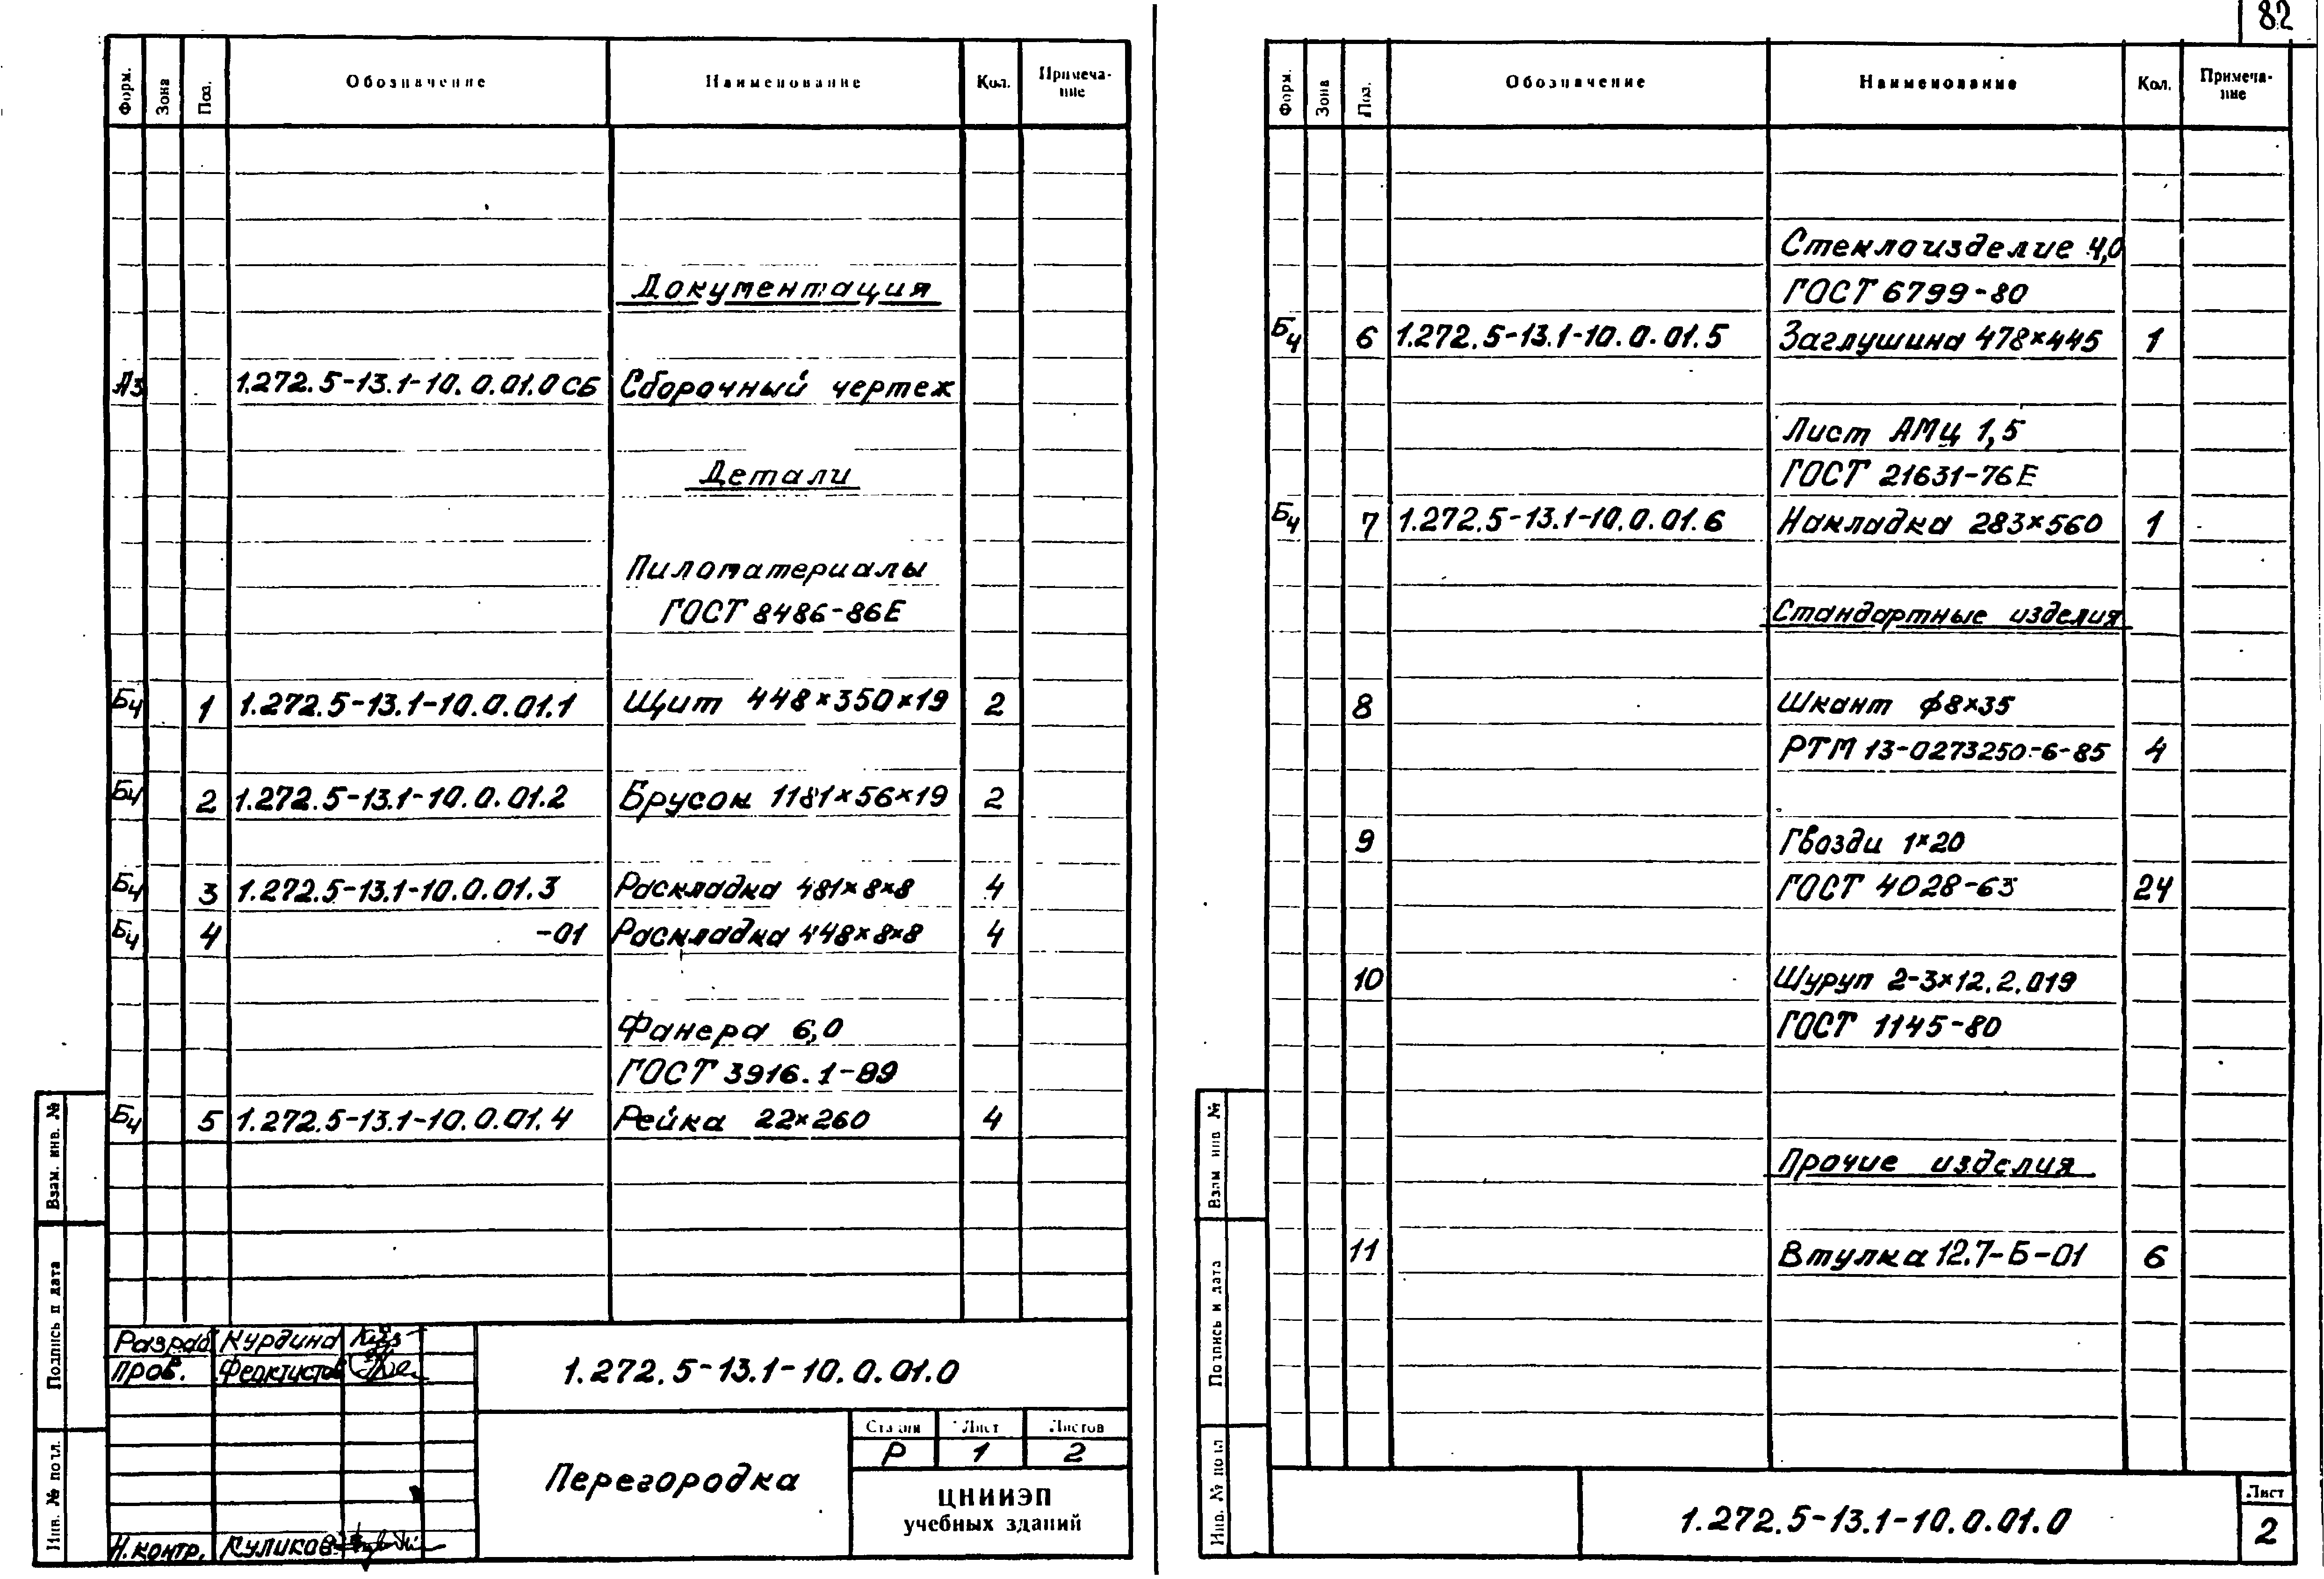 82
Форм. Зона Поз. Обозначение Наименование Кол. Примеча-
ние
Документация
А3 1.272.5-13.1-10.0.01.0СБ Сборочный чертеж
Детали
Пиломатериалы
ГОСТ 8486-86Е
БЧ 1 1.272.5-13.1-10.0.01.1 Щит 448×350×19 2
БЧ 2 1.272.5-13.1-10.0.01.2 Брусок 1181×56×19 2
БЧ 3 1.272.5-13.1-10.0.01.3 Раскладка 481×8×8 4
БЧ 4 -01 Раскладка 448×8×8 4
Фанера 6,0
ГОСТ 3916.1-89
БЧ 5 1.272.5-13.1-10.0.01.4 Рейка 22×260 4
Взам. инв. №
Подпись и дата
Инв. № подл.
Разраб. Курдина
Пров. Феоктистов
Н.контр. Куликов
1.272.5-13.1-10.0.01.0
Перегородка
Стадия Лист Листов
Р 1 2
ЦНИИЭП
учебных зданий
Форм. Зона Поз. Обозначение Наименование Кол. Примеча-
ние
Стеклоизделие 4,0
ГОСТ 6799-80
БЧ 6 1.272.5-13.1-10.0.01.5 Заглушина 478×445 1
Лист АМЦ 1,5
ГОСТ 21631-76Е
БЧ 7 1.272.5-13.1-10.0.01.6 Накладка 283×560 1
Стандартные изделия
8 Шкант ϕ8×35
РТМ 13-0273250-6-85 4
9 Гвозди 1×20
ГОСТ 4028-63 24
10 Шуруп 2-3×12.2.019
ГОСТ 1145-80
Прочие изделия
11 Втулка 12.7-Б-01 6
Взам инв №
Подпись и дата
Инв. № подл
1.272.5-13.1-10.0.01.0
Лист
2